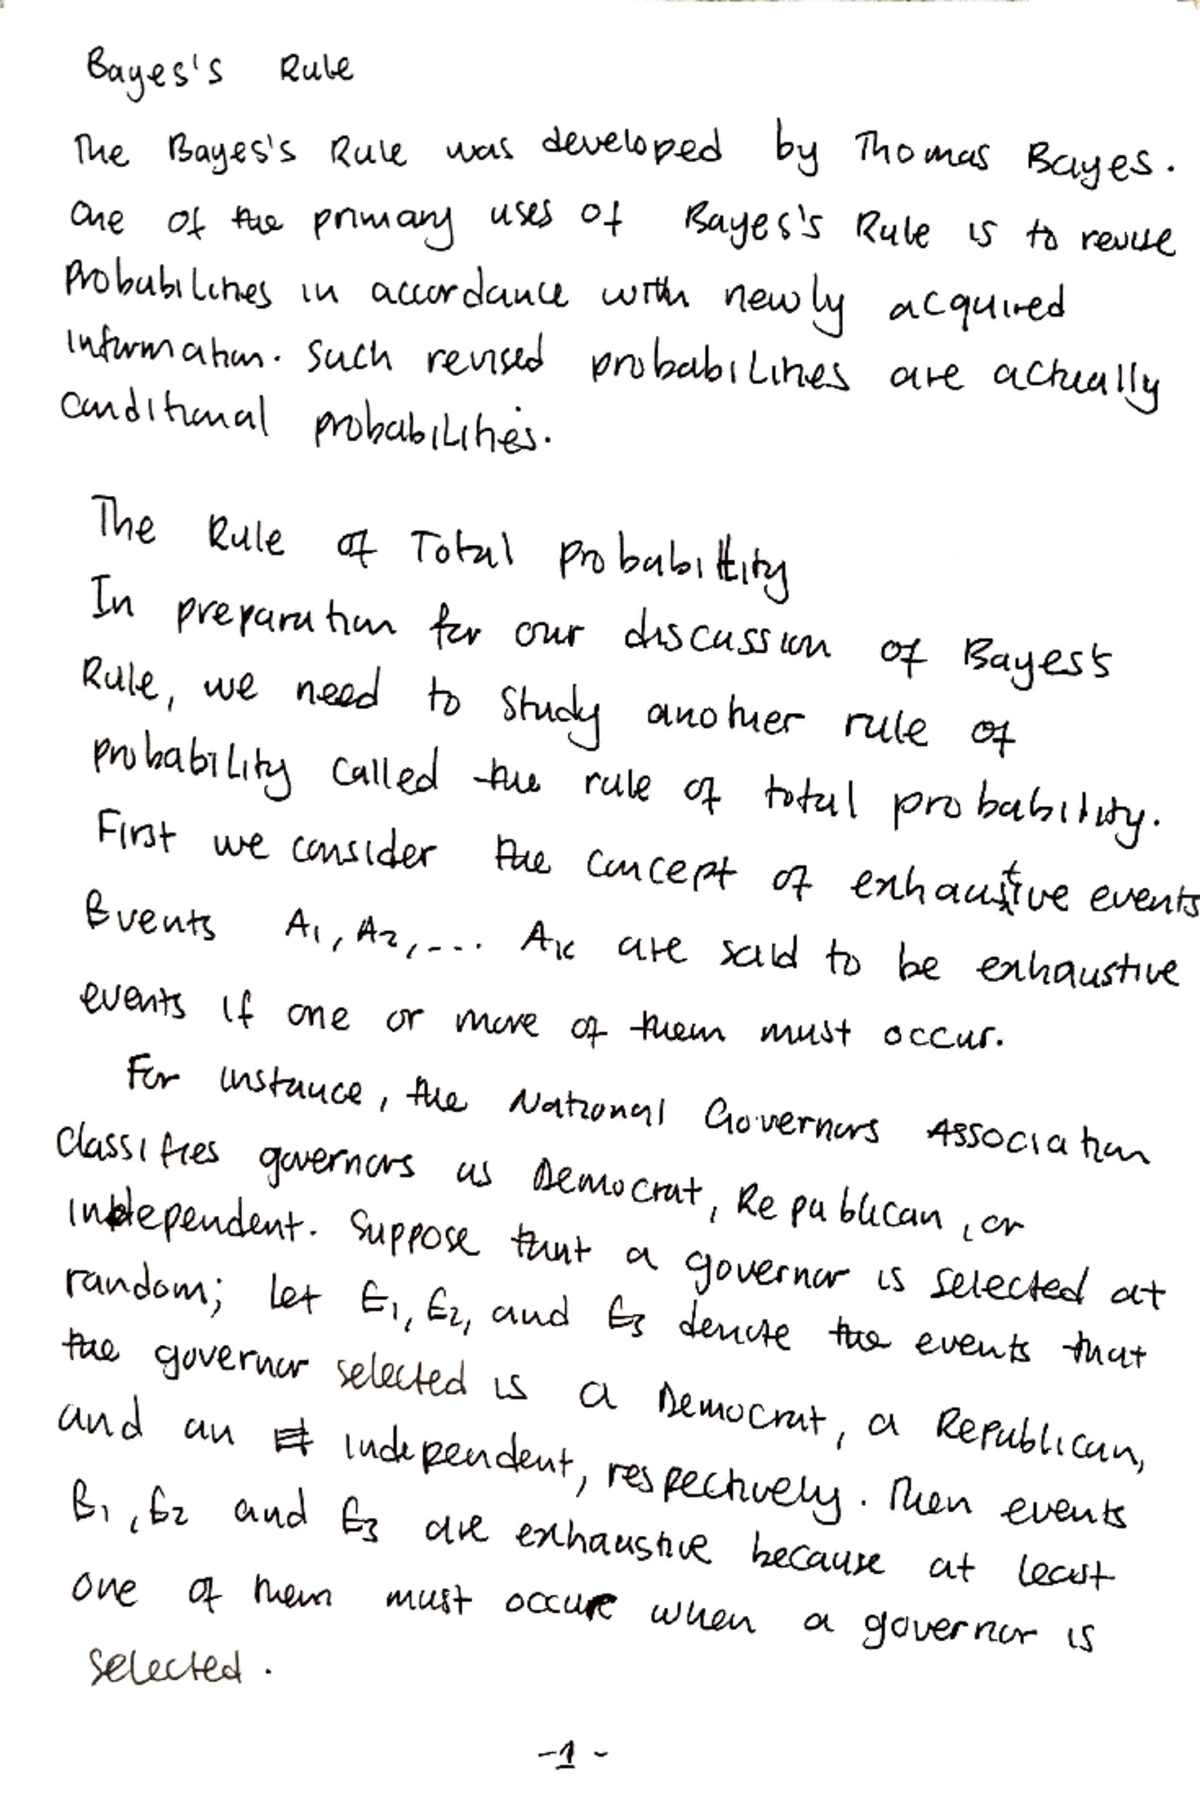 Bayes's Rule
The Bayes's Rule was developed by Thomas Bayes.
One of the primary uses of Bayes's Rule is to revise
probabilities in accordance with newly acquired
information. Such revised probabilities are actually
conditional probabilities.
The Rule of Total probability
In preparation for our discussion of Bayes's
Rule, we need to study another rule of
probability called the rule of total probability.
First we consider the concept of exhaustive events
Events A1, A2, ... Ak are said to be exhaustive
events if one or more of them must occur.
For instance, the National Governors Association
classifies governors as Democrat, Republican, or
independent. Suppose that a governor is selected at
random; let E1, E2, and E3 denote the events that
the governor selected is a Democrat, a Republican,
and an independent, respectively. Then events
E1, E2 and E3 are exhaustive because at least
one of them must occur when a governor is
selected.
-1-